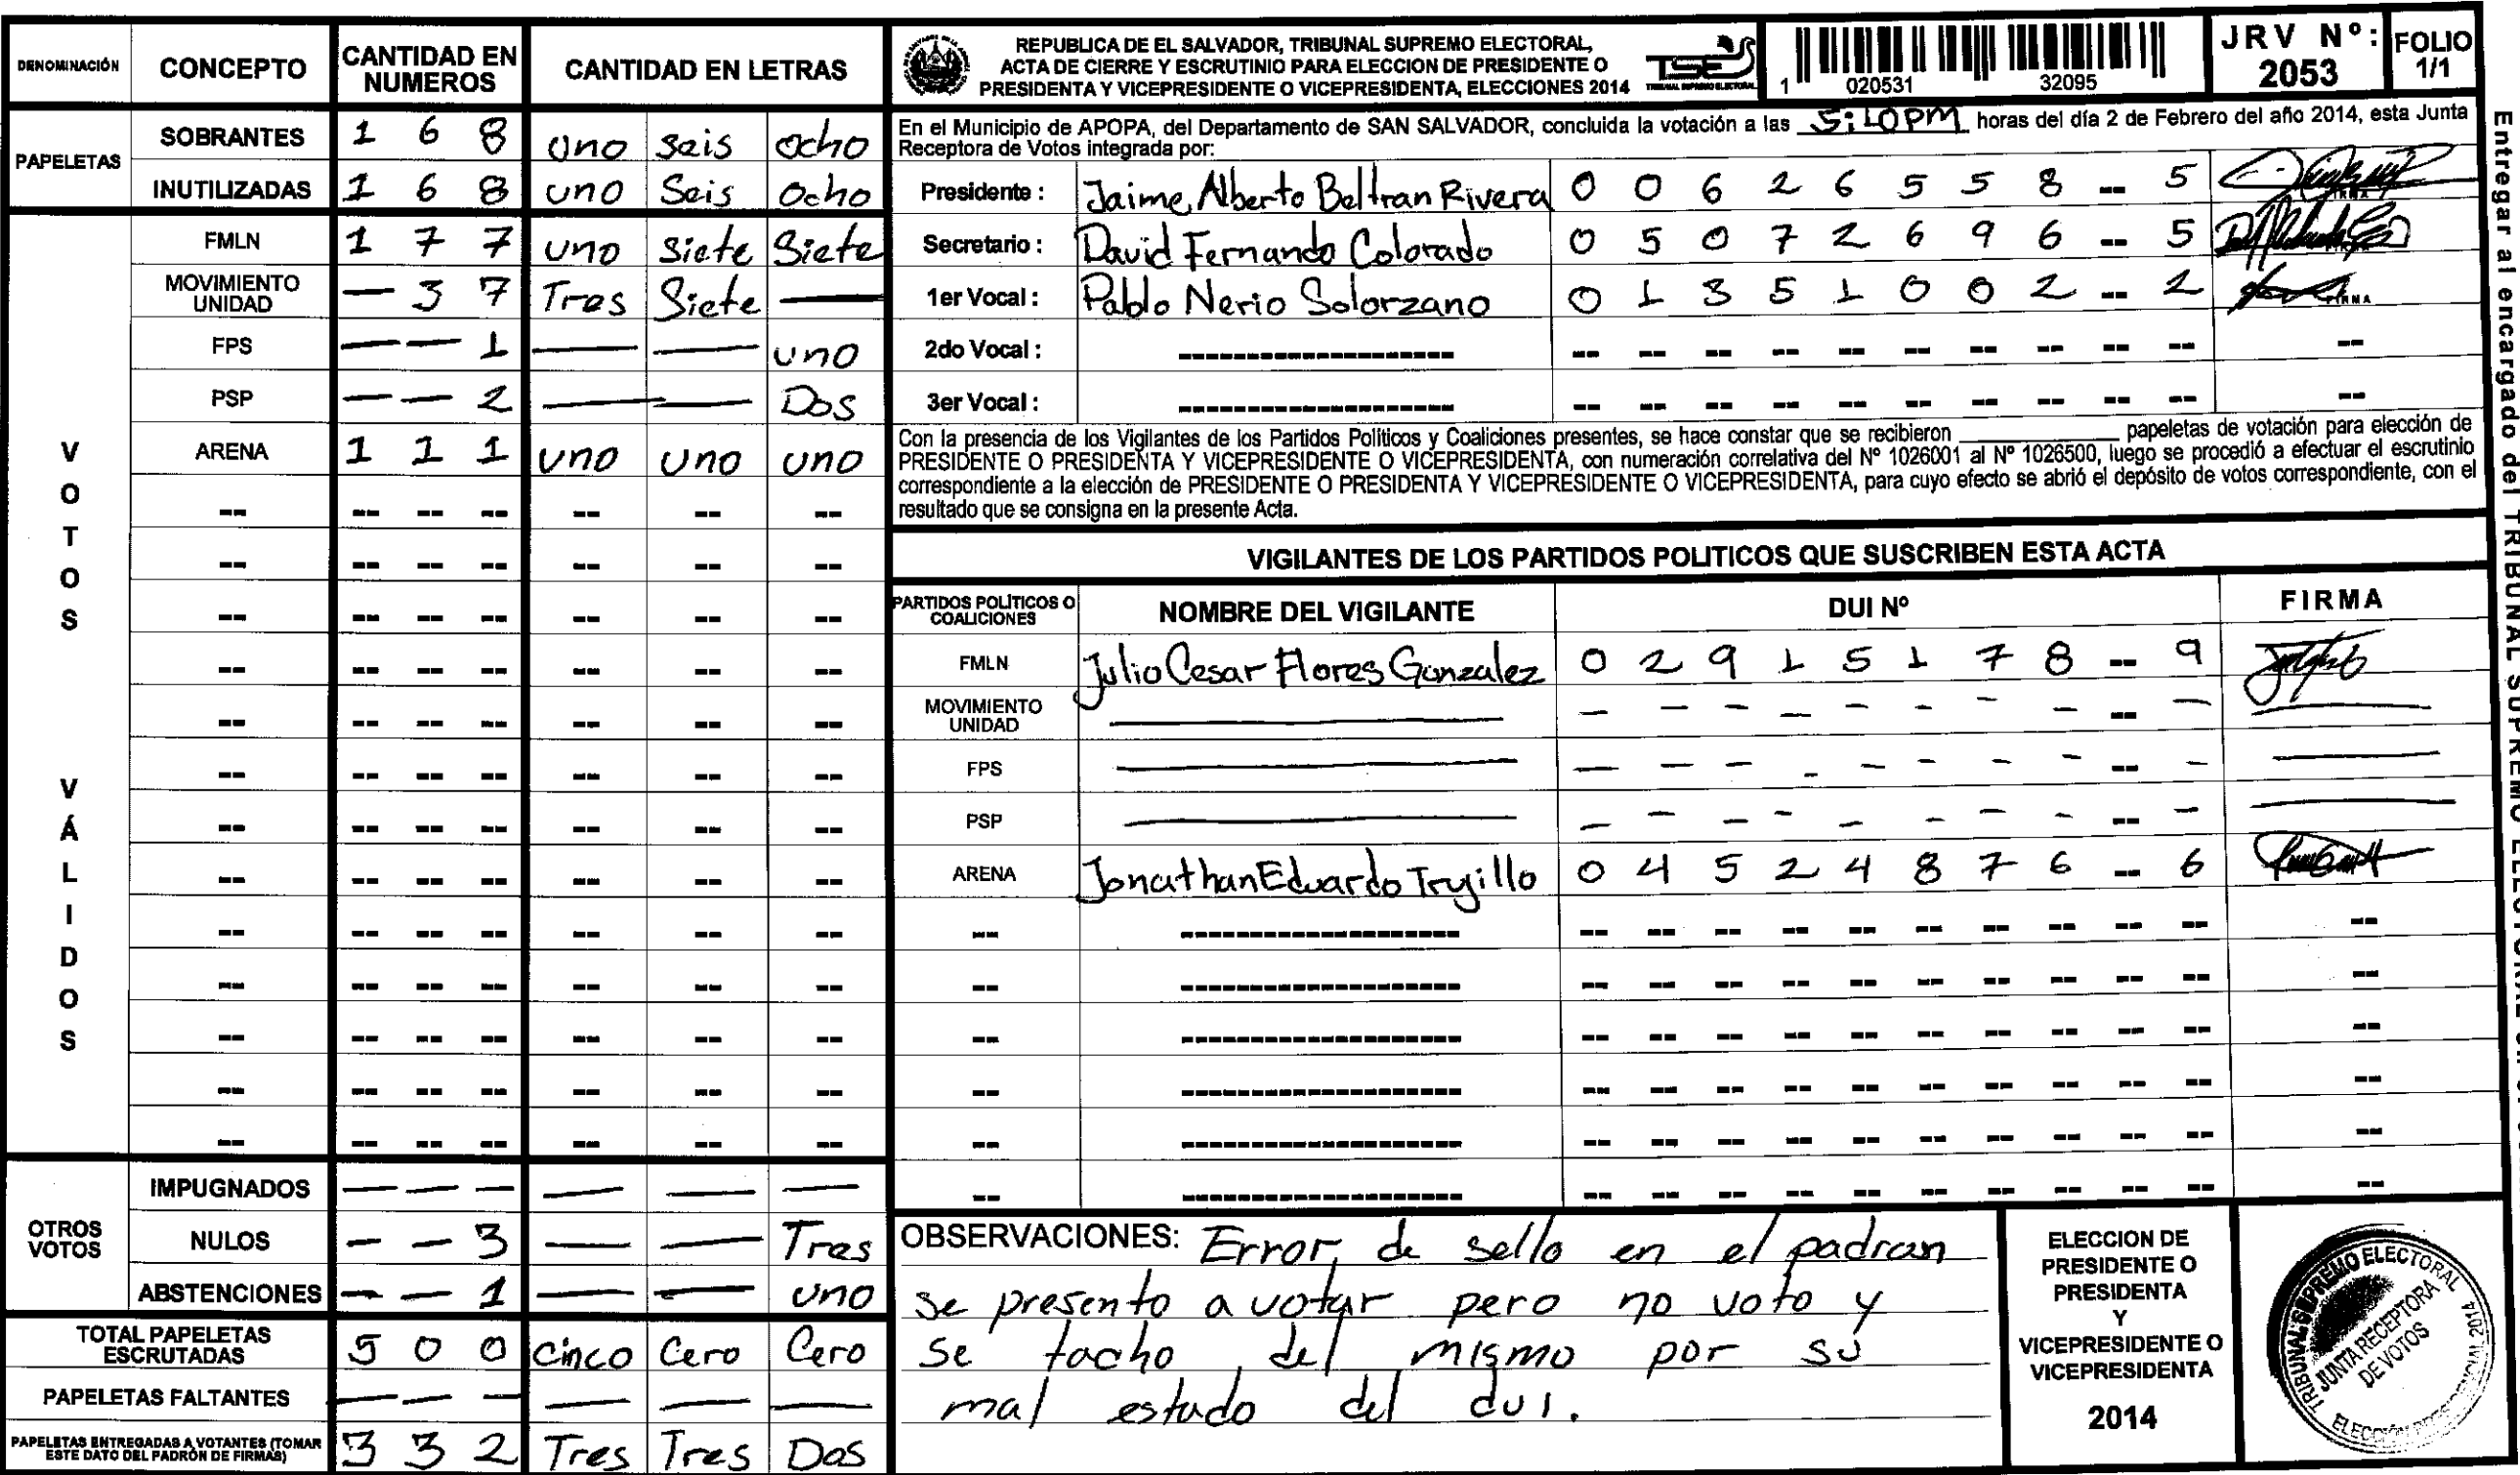 DENOMINACIÓN CONCEPTO CANTIDAD EN NUMEROS CANTIDAD EN LETRAS
PAPELETAS
SOBRANTES 1 6 8 uno seis ocho
INUTILIZADAS 1 6 8 uno Seis Ocho
VOTOS VÁLIDOS
FMLN 1 7 7 uno Siete Siete
MOVIMIENTO UNIDAD — 3 7 Tres Siete —
FPS — — 1 — — uno
PSP — — 2 — — Dos
ARENA 1 1 1 uno uno uno
OTROS VOTOS
IMPUGNADOS — — — — — —
NULOS — — 3 — — Tres
ABSTENCIONES — — 1 — — uno
TOTAL PAPELETAS ESCRUTADAS 5 0 0 Cinco Cero Cero
PAPELETAS FALTANTES — — — — — —
PAPELETAS ENTREGADAS A VOTANTES (TOMAR ESTE DATO DEL PADRÓN DE FIRMAS) 3 3 2 Tres Tres Dos
REPUBLICA DE EL SALVADOR, TRIBUNAL SUPREMO ELECTORAL,
ACTA DE CIERRE Y ESCRUTINIO PARA ELECCION DE PRESIDENTE O
PRESIDENTA Y VICEPRESIDENTE O VICEPRESIDENTA, ELECCIONES 2014
TSE
1 020531 32095
JRV Nº: 2053
FOLIO 1/1
En el Municipio de APOPA, del Departamento de SAN SALVADOR, concluida la votación a las 5:10PM horas del día 2 de Febrero del año 2014, esta Junta
Receptora de Votos integrada por:
Presidente : Jaime Alberto Beltran Rivera 0 0 6 2 6 5 5 8 -- 5
Secretario : David Fernando Colorado 0 5 0 7 2 6 9 6 -- 5
1er Vocal : Pablo Nerio Solorzano 0 1 3 5 1 0 0 2 -- 2 FIRMA
2do Vocal :
3er Vocal :
Con la presencia de los Vigilantes de los Partidos Políticos y Coaliciones presentes, se hace constar que se recibieron ____ papeletas de votación para elección de
PRESIDENTE O PRESIDENTA Y VICEPRESIDENTE O VICEPRESIDENTA, con numeración correlativa del Nº 1026001 al Nº 1026500, luego se procedió a efectuar el escrutinio
correspondiente a la elección de PRESIDENTE O PRESIDENTA Y VICEPRESIDENTE O VICEPRESIDENTA, para cuyo efecto se abrió el depósito de votos correspondiente, con el
resultado que se consigna en la presente Acta.
VIGILANTES DE LOS PARTIDOS POLITICOS QUE SUSCRIBEN ESTA ACTA
PARTIDOS POLÍTICOS O COALICIONES NOMBRE DEL VIGILANTE DUI Nº FIRMA
FMLN Julio Cesar Flores Gonzalez 0 2 9 1 5 1 7 8 -- 9
MOVIMIENTO UNIDAD
FPS
PSP
ARENA Jonathan Eduardo Trujillo 0 4 5 2 4 8 7 6 -- 6
OBSERVACIONES: Error de sello en el padran
se presento a votar pero no voto y
se tacho del mismo por su
mal estado del dui.
ELECCION DE
PRESIDENTE O
PRESIDENTA
Y
VICEPRESIDENTE O
VICEPRESIDENTA
2014
TRIBUNAL SUPREMO ELECTORAL
JUNTA RECEPTORA
DE VOTOS
Entregar al encargado del TRIBUNAL SUPREMO